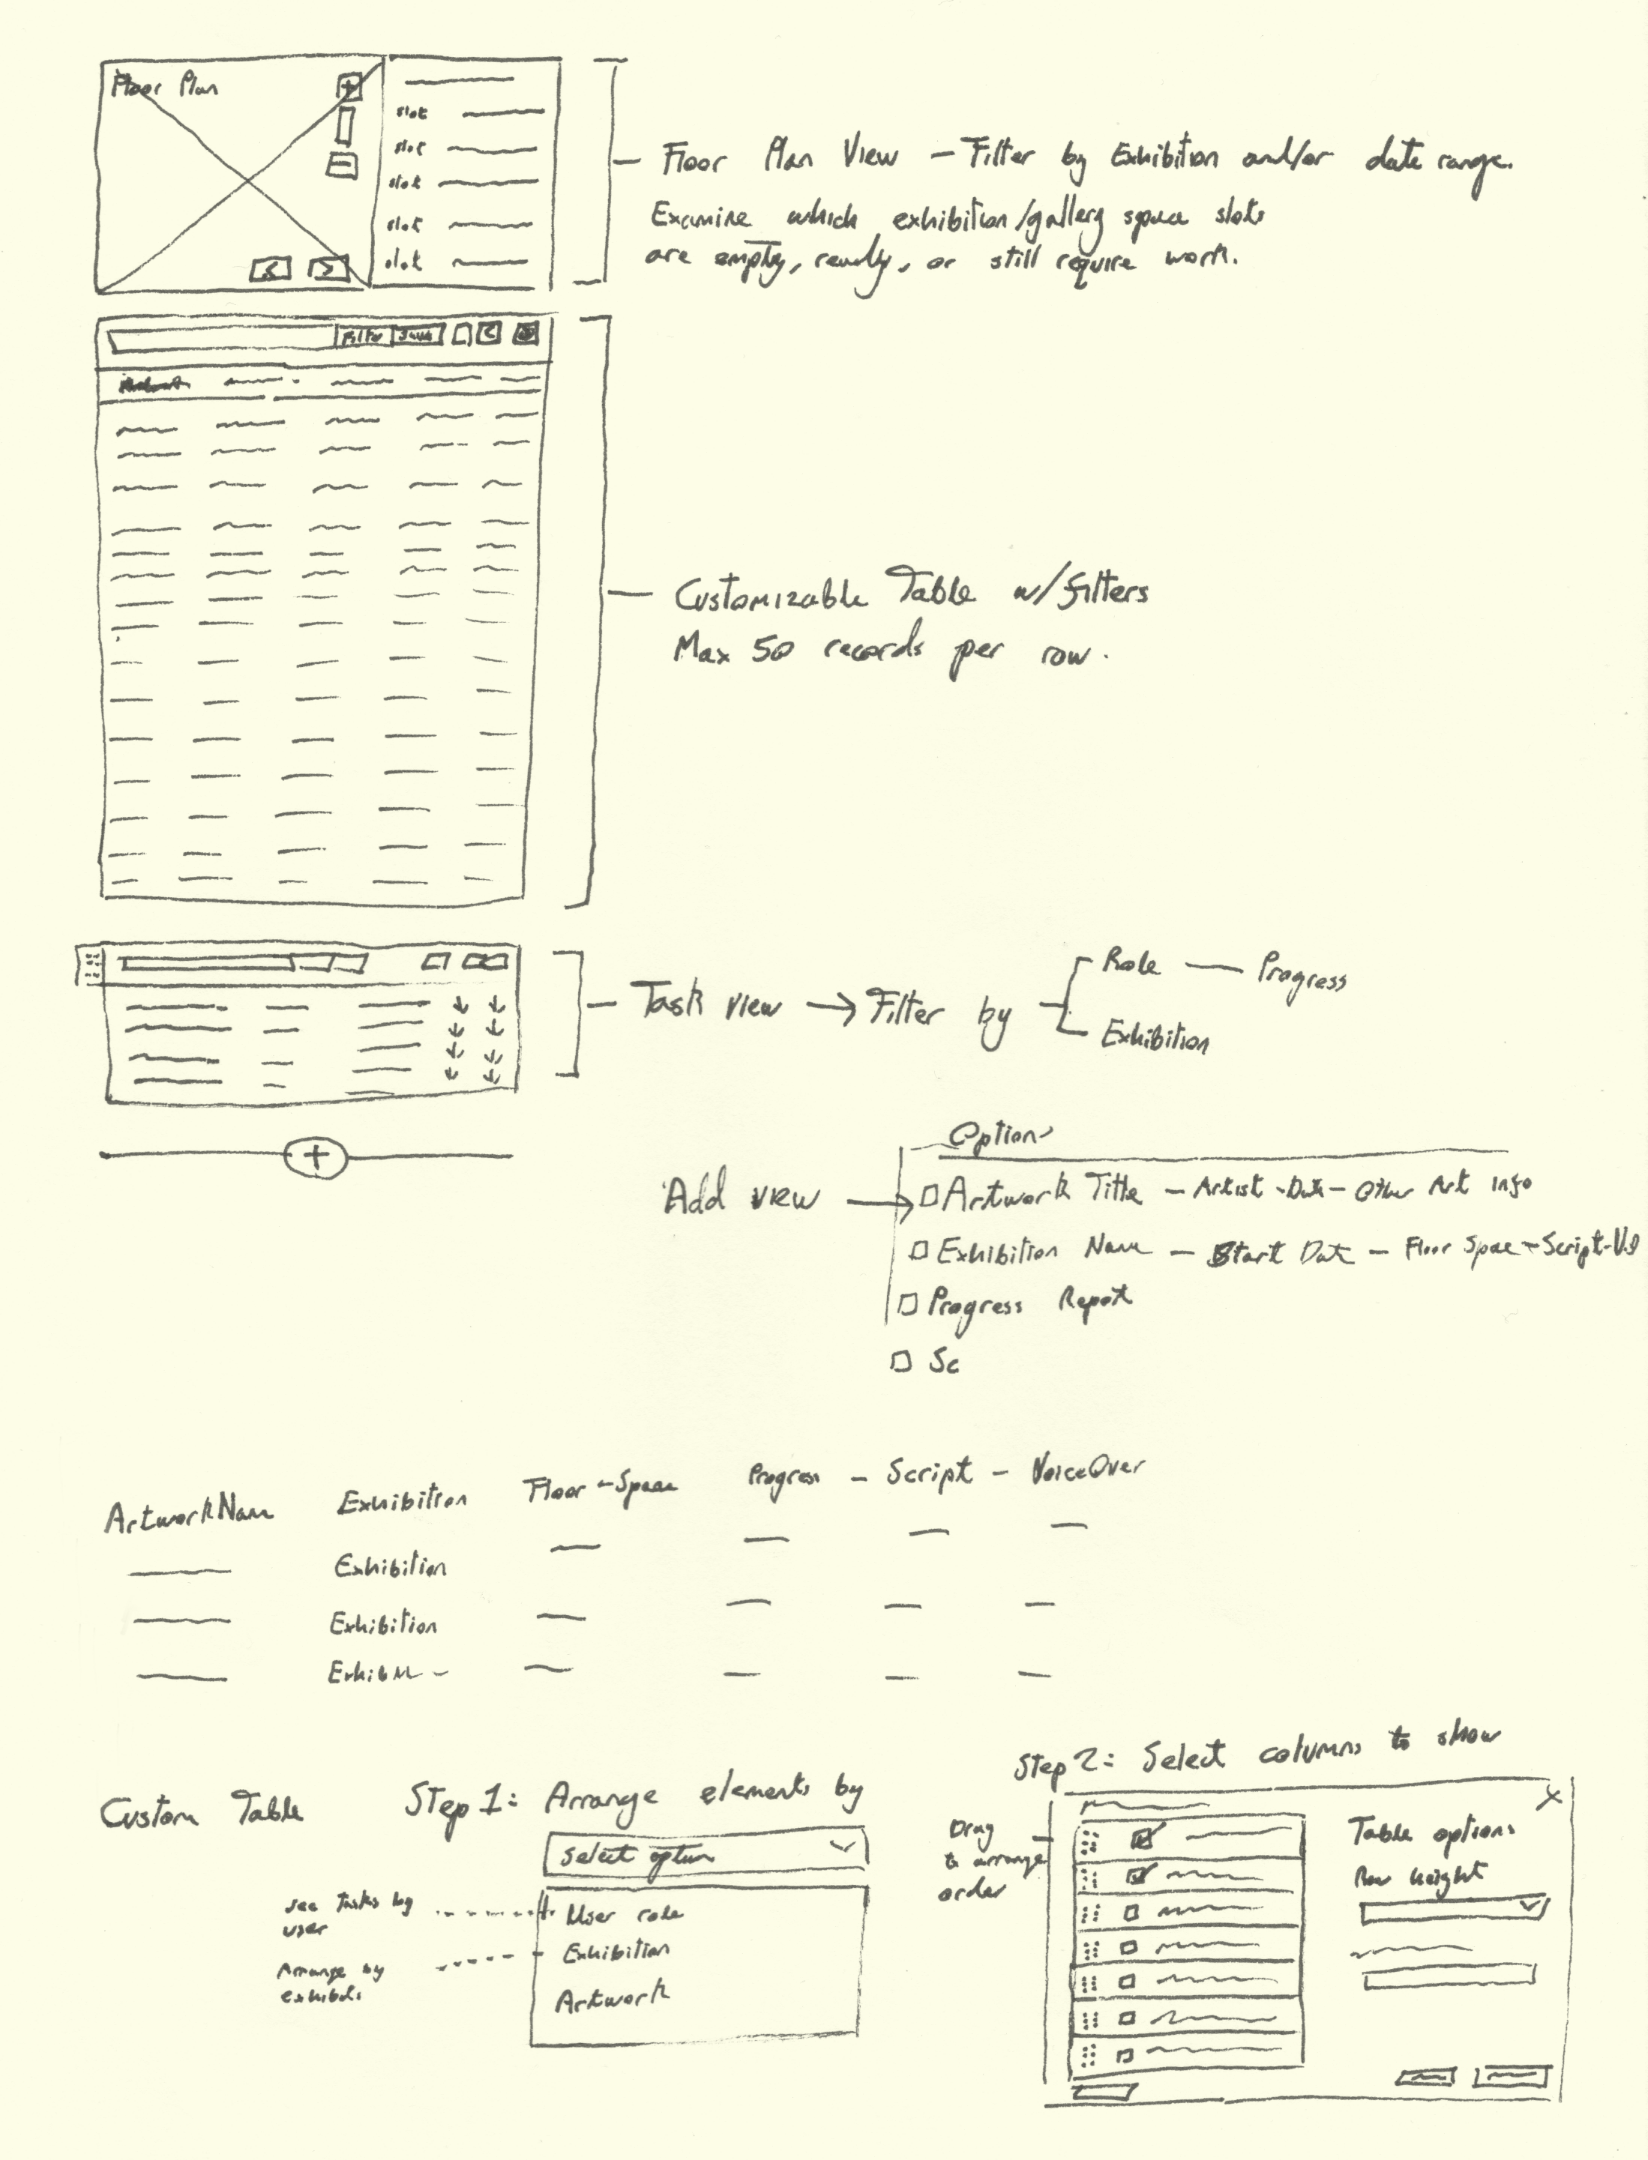 Floor Plan
slot
slot
slot
slot
slot
Floor Plan View - Filter by Exhibition and/or date range.
Examine which exhibition/gallery space slots
are empty, ready, or still require work.
Filter Save
Customizable Table w/filters
Max 50 records per row.
Task view → Filter by
Role — Progress
Exhibition
Add view →
Options
Artwork Title - Artist - Date - Other Art Info
Exhibition Name - Start Date - Floor Space - Script - V.O
Progress Report
Sc
ArtworkName Exhibition Floor-Space Progress - Script - VoiceOver
Exhibition
Exhibition
Custom Table
Step 1: Arrange elements by
Select option
User role
Exhibition
Artwork
See Tasks by
user
Arrange by
Step 2: Select columns to show
Drag
to arrange
order
Table options
Row height